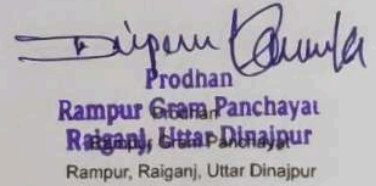 Prodhan
Rampur Gram Panchayat
Raiganj, Uttar Dinajpur
Prodhan
Rampur Gram Panchayat
Rampur, Raiganj, Uttar Dinajpur